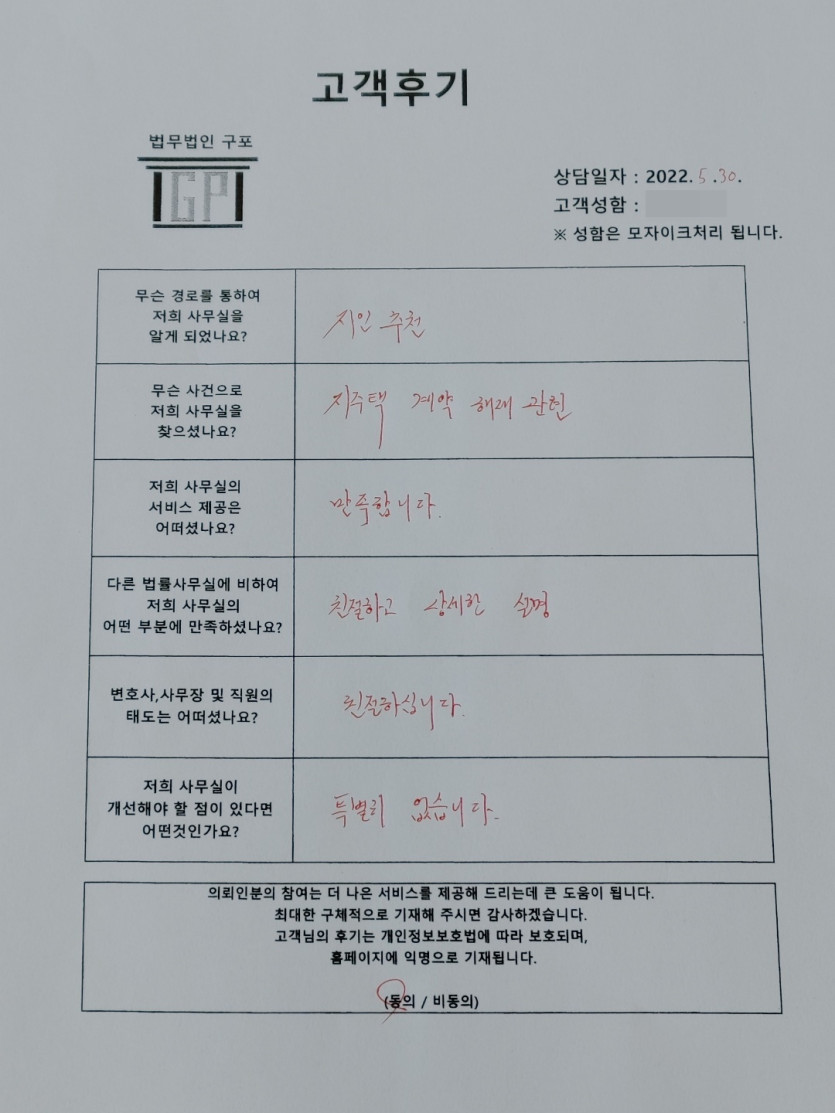 고객후기
법무법인 구포
GP
상담일자 : 2022. 5. 30.
고객성함 :
※ 성함은 모자이크처리 됩니다.
무슨 경로를 통하여
저희 사무실을
알게 되었나요?
지인 추천
무슨 사건으로
저희 사무실을
찾으셨나요?
지주택 계약 해제 관련
저희 사무실의
서비스 제공은
어떠셨나요?
만족합니다.
다른 법률사무실에 비하여
저희 사무실의
어떤 부분에 만족하셨나요?
친절하고 상세한 설명
변호사,사무장 및 직원의
태도는 어떠셨나요?
친절하십니다.
저희 사무실이
개선해야 할 점이 있다면
어떤것인가요?
특별히 없습니다.
의뢰인분의 참여는 더 나은 서비스를 제공해 드리는데 큰 도움이 됩니다.
최대한 구체적으로 기재해 주시면 감사하겠습니다.
고객님의 후기는 개인정보보호법에 따라 보호되며,
홈페이지에 익명으로 기재됩니다.
(동의 / 비동의)